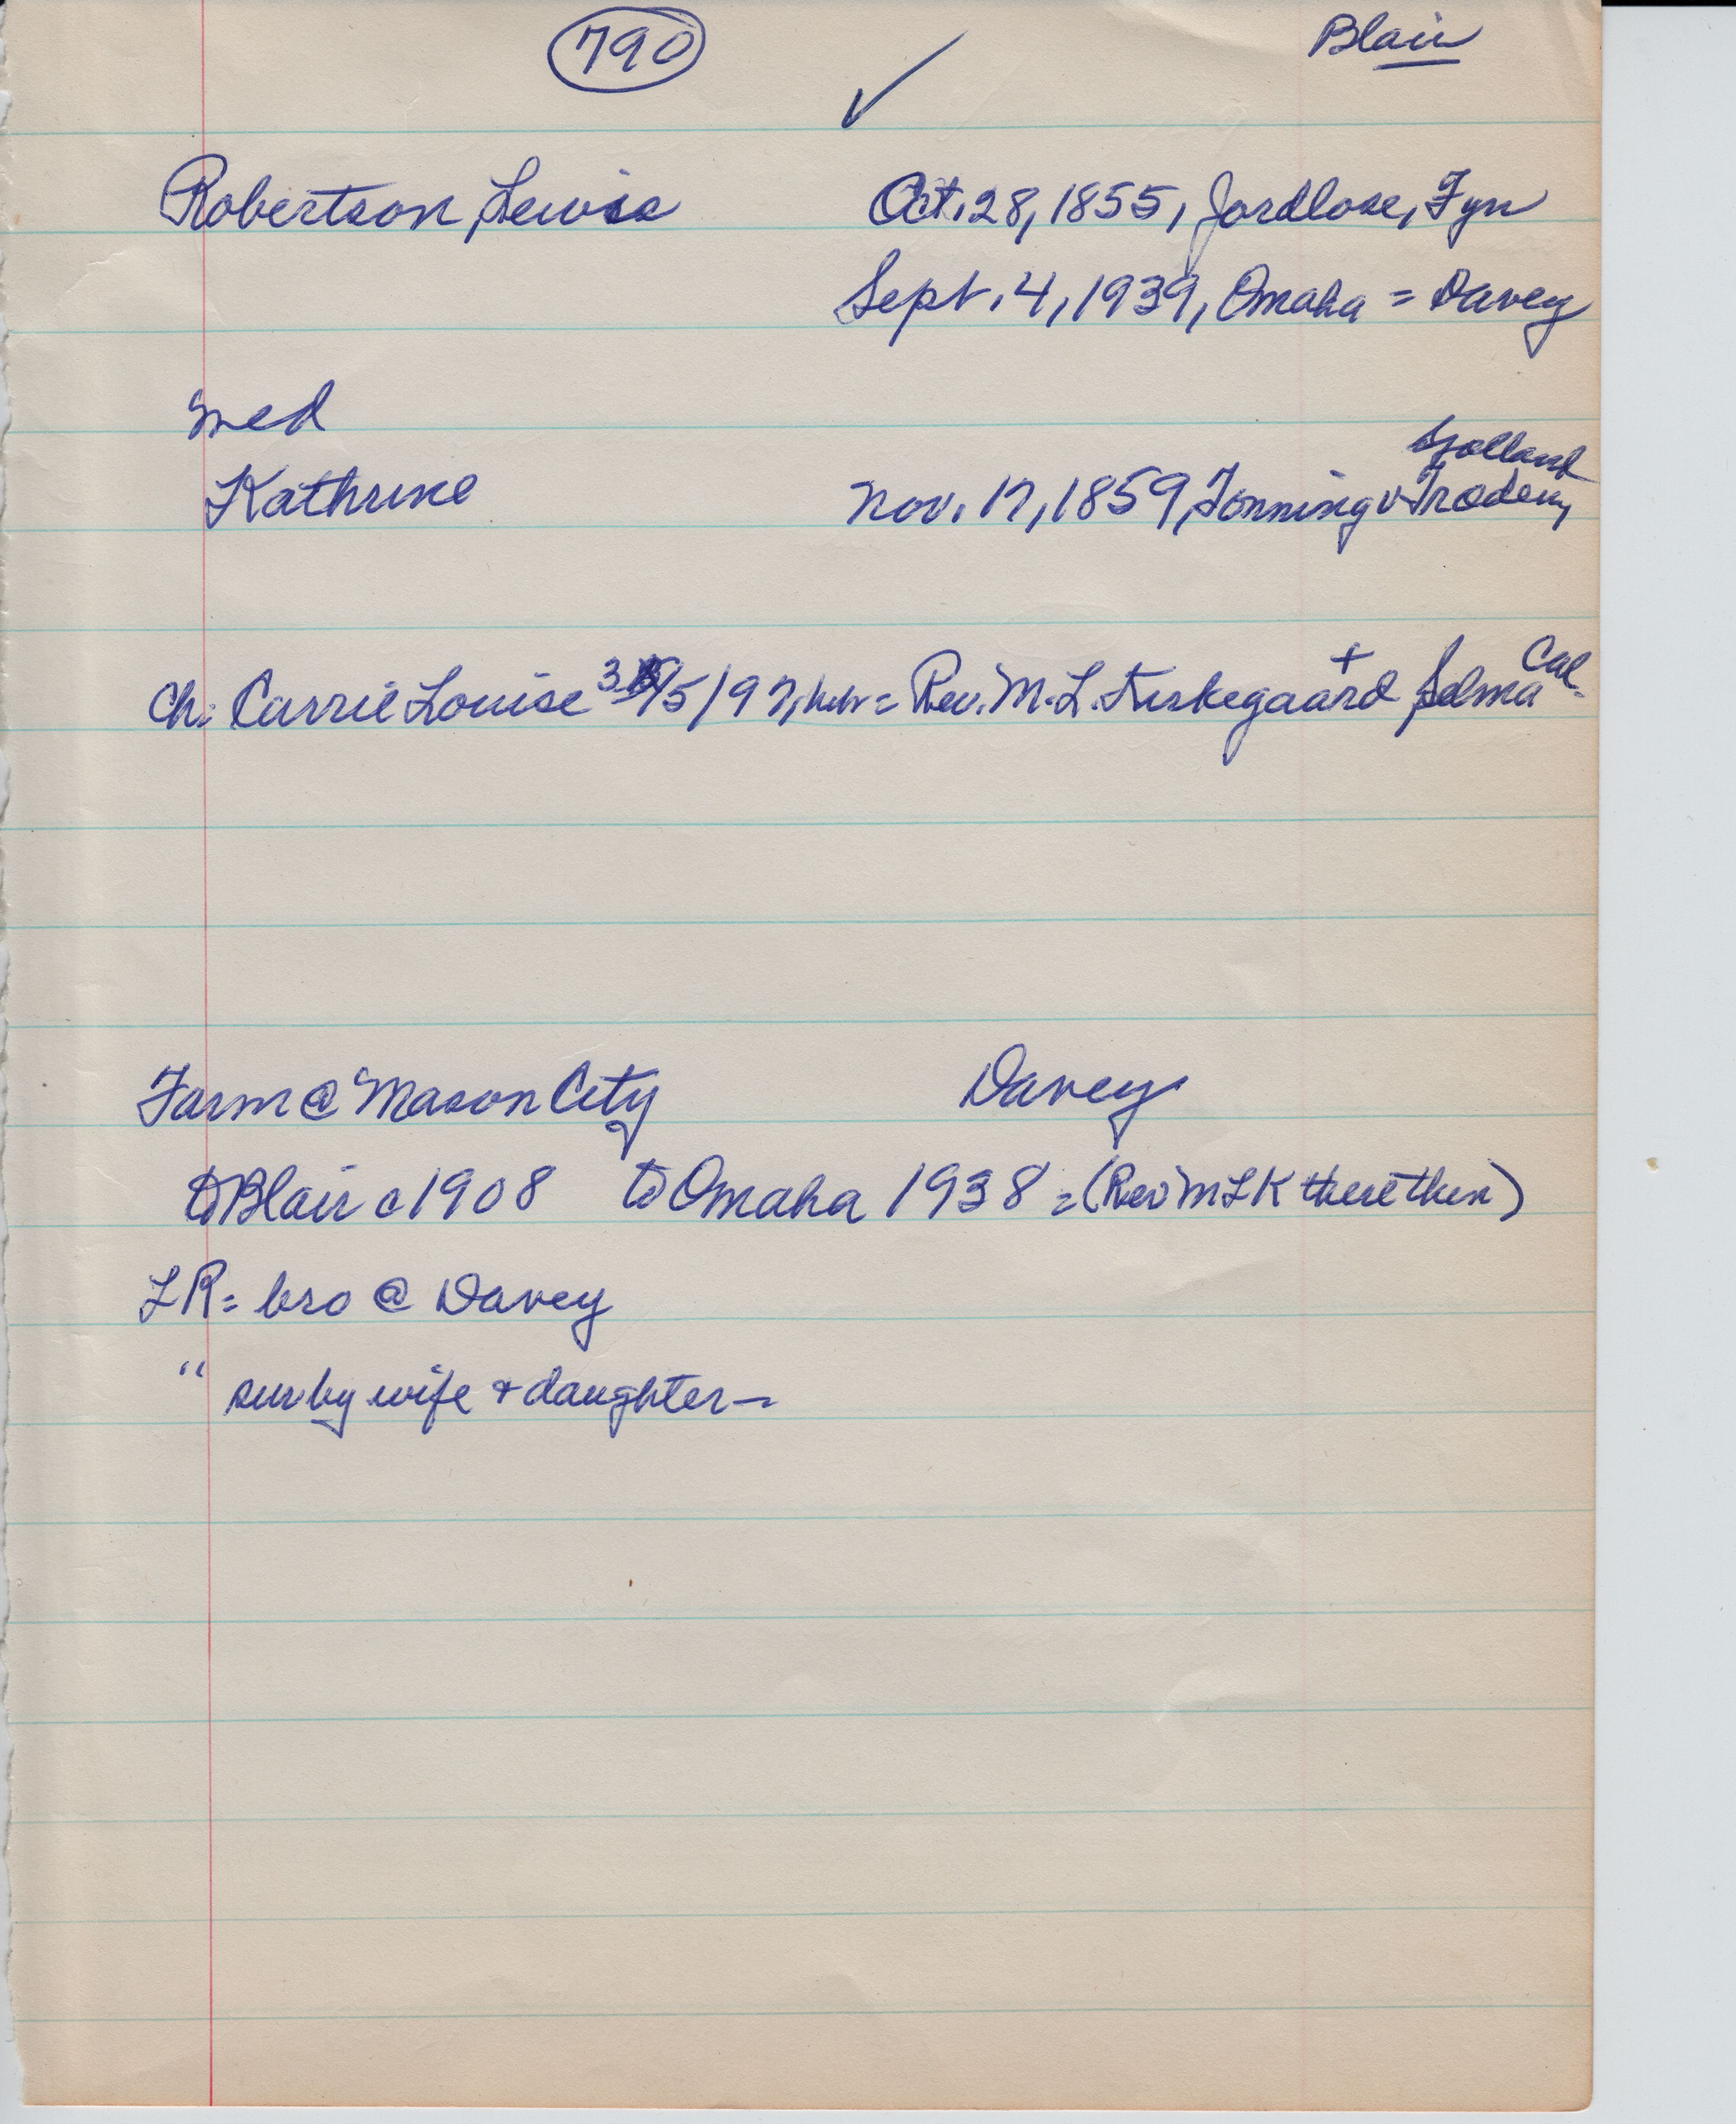 790
Blair
✓
Robertson, Lewis Oct. 28, 1855, Jordlose, Fyn
Sept. 4, 1939, Omaha = Davey
med
Kathrine Nov. 17, 1859, Fonning v Træden, Jylland
Ch: Carrie Louise 3/5/97, = Rev. M. L. Kirkegaard + Selma Cal.
Farm @ Mason City Davey
to Blair c 1908 to Omaha 1938 = (Rev MLK there then)
LR = bro @ Davey
" sur by wife + daughter —